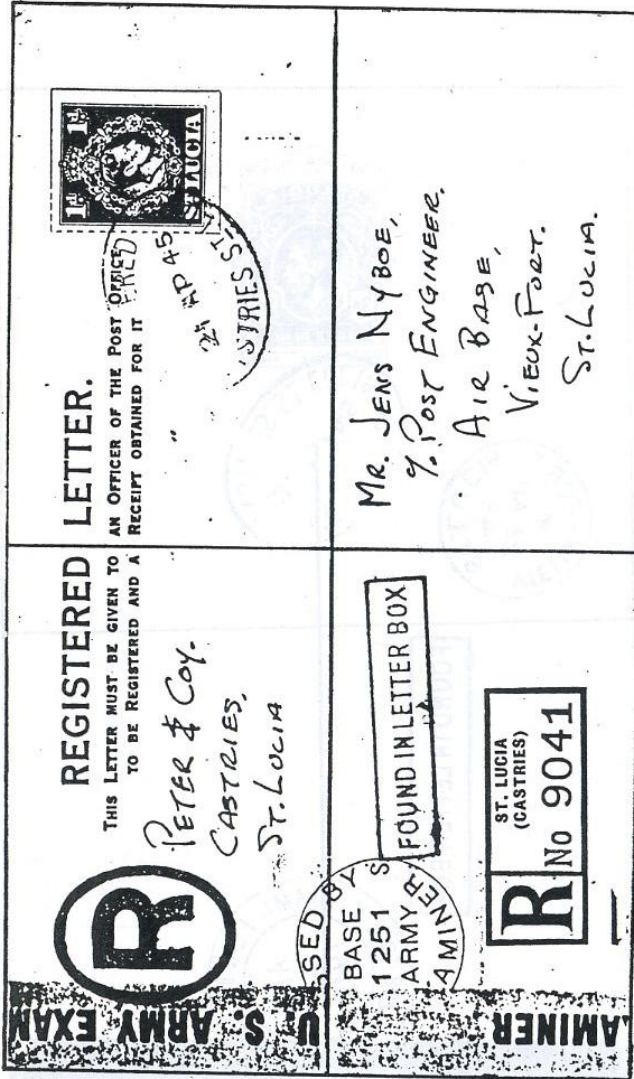 REGISTERED LETTER.
THIS LETTER MUST BE GIVEN TO AN OFFICER OF THE POST OFFICE
TO BE REGISTERED AND A RECEIPT OBTAINED FOR IT
R
PETER & COY.
CASTRIES,
ST. LUCIA
1d 1d
ST LUCIA
24 AP 45
STRIES ST.
U. S. ARMY EXAM
AMINER
SED BY
BASE
1251 S
ARMY
AMINER
FOUND IN LETTER BOX
R
ST. LUCIA
(CASTRIES)
No 9041
MR. JENS NYBOE,
% POST ENGINEER,
AIR BASE,
VIEUX-FORT.
ST. LUCIA.